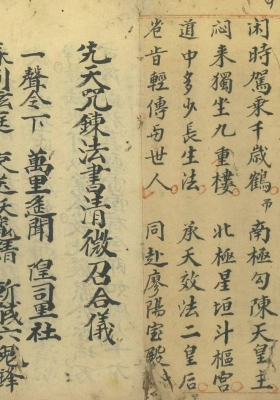 閑時駕乘千歲鶴 南極勾陳天皇主
悶來獨坐九重樓 北極星垣斗樞宮
道中多少長生法 承天效法二皇后
豈肯輕傳与世人 同赴廖陽宝殿
先天咒鍊法書清微召合儀
一聲令下 萬里遙聞 隍司里社